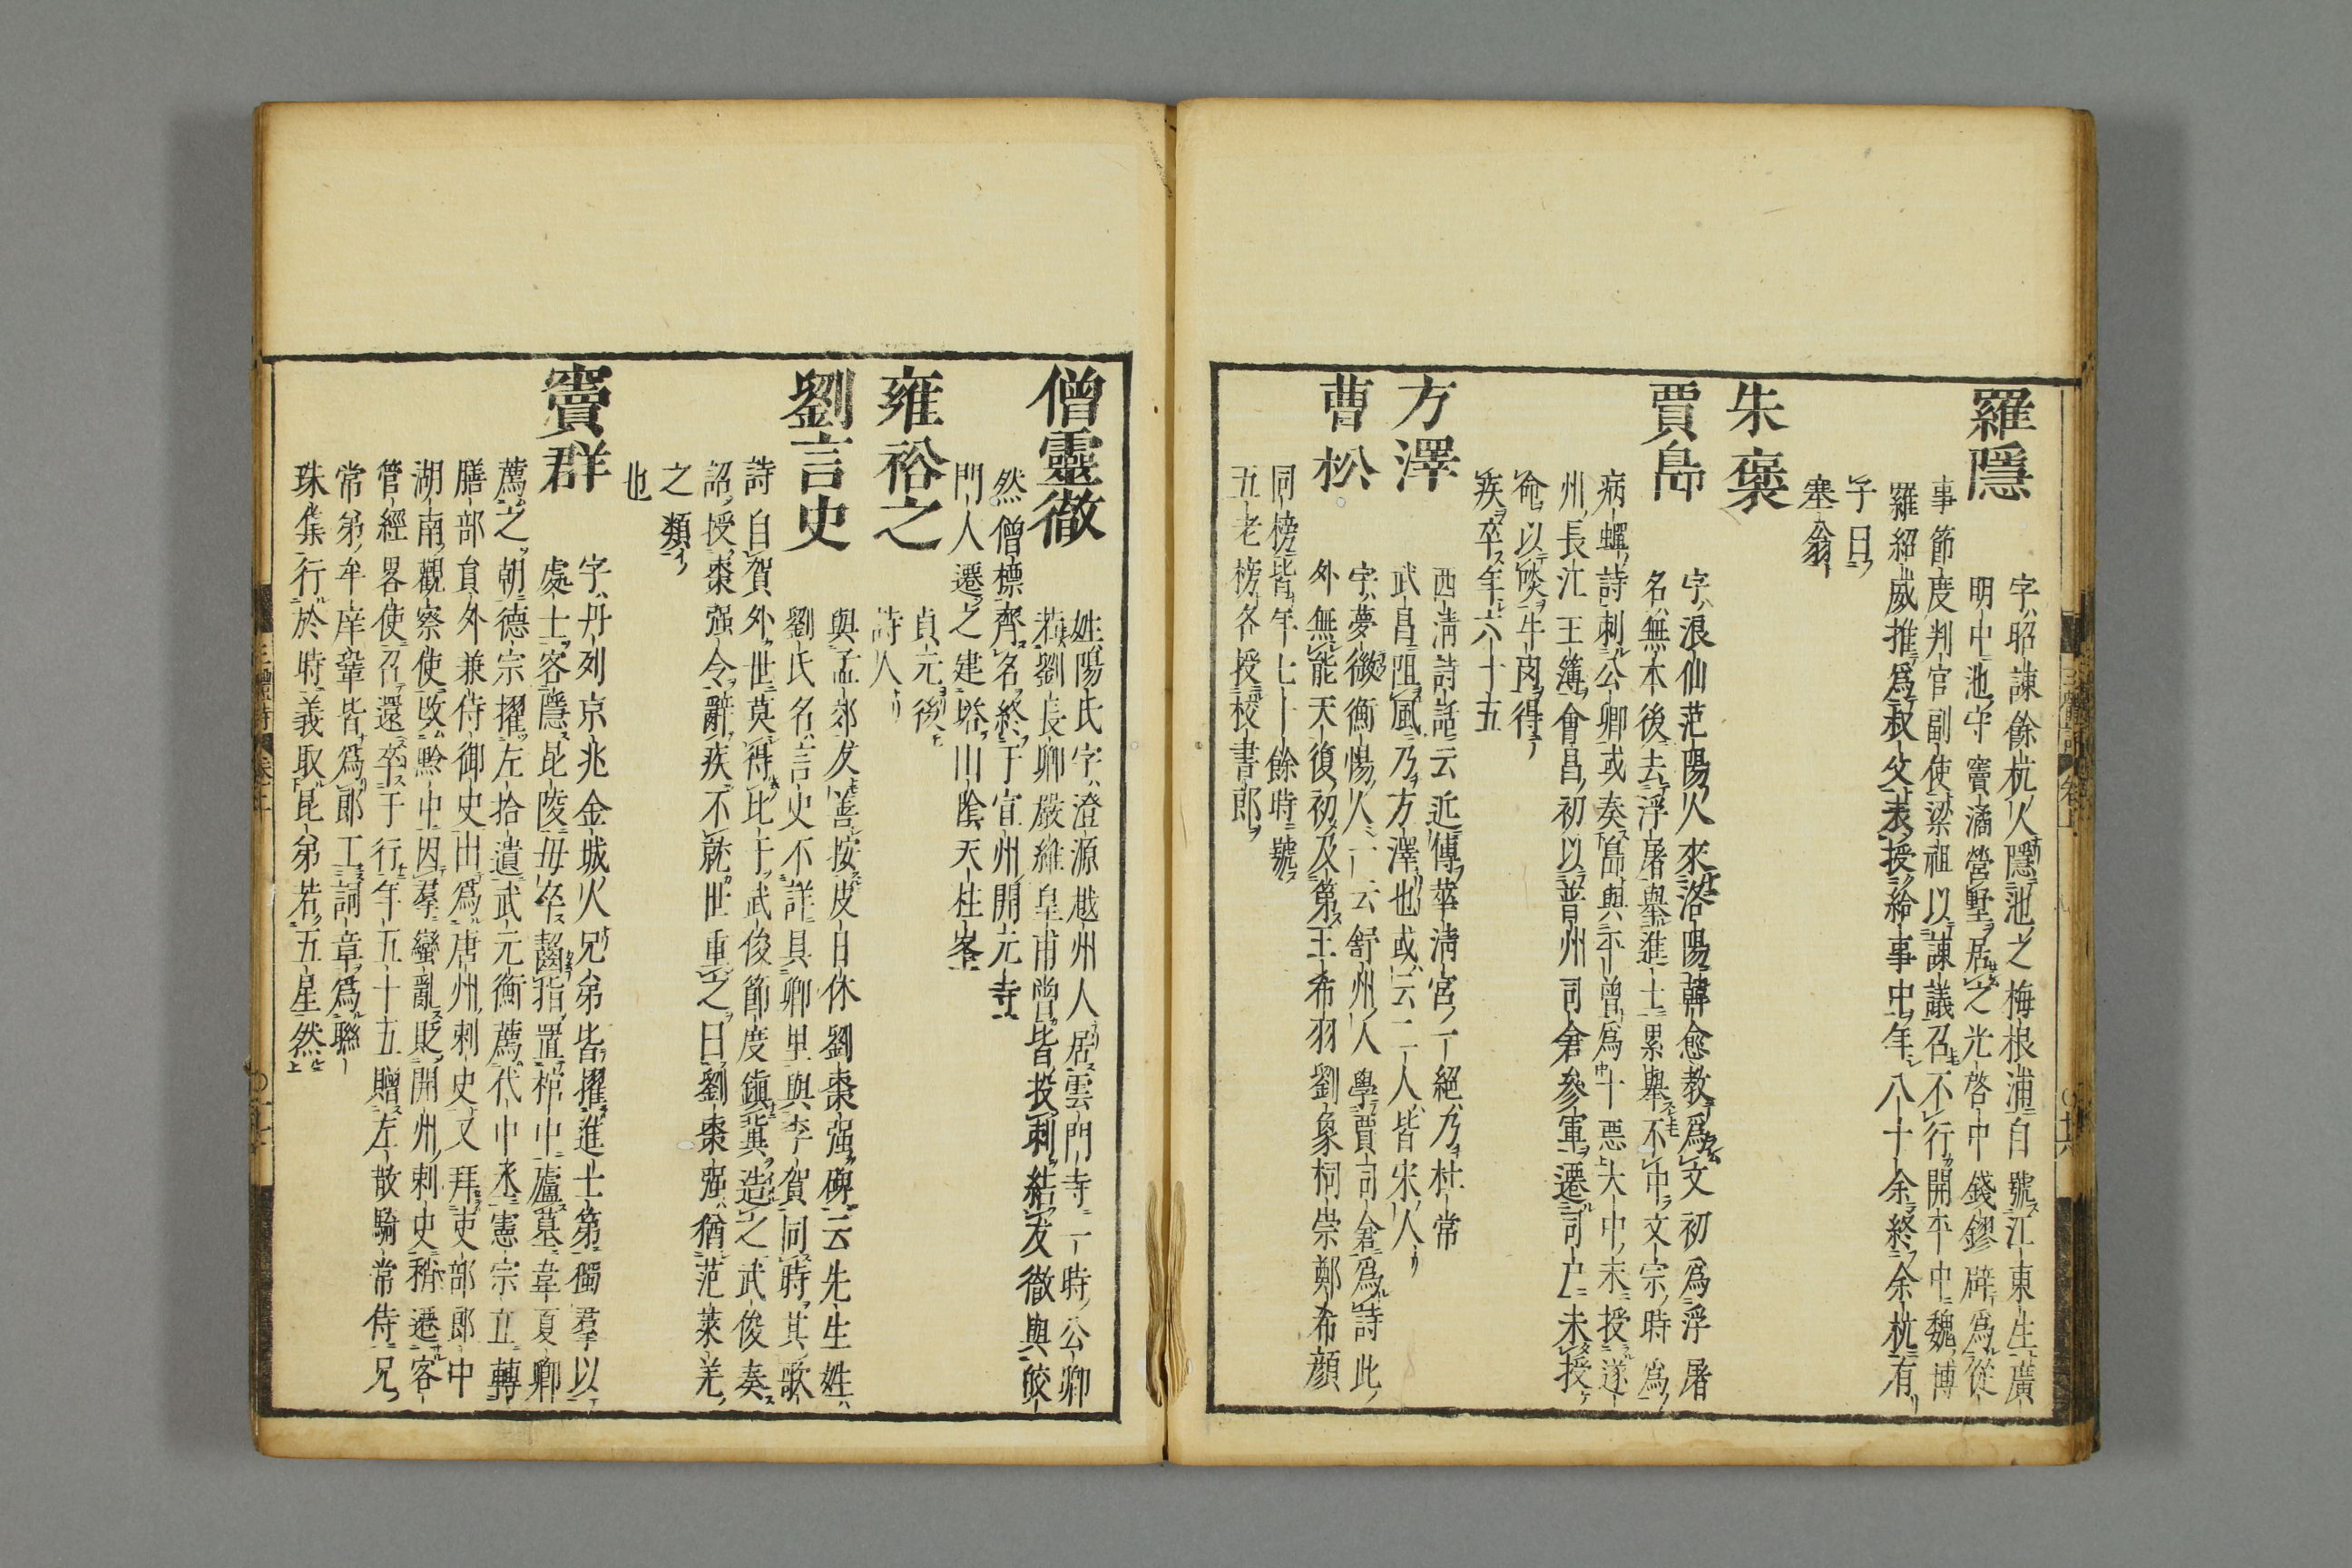 羅隱
字昭諫餘杭人隱池之梅根浦自號江東生廣
明中池守竇潏營墅居之光啓中錢鏐辟爲從
事節度判官副使梁祖以諫議召不行開平中魏博
羅紹威推爲叔父表授給事中年八十余終余杭有
子曰
塞翁
朱襃
賈島
字浪仙范陽人來洛陽韓愈教爲文初爲浮屠
名無本後去浮屠舉進士累舉不中文宗時爲
病蟬詩刺公卿或奏島與平曾爲十惡大中末授遂
州長江主簿會昌初以普州司倉參軍遷司戶未授
命以啖牛肉得
疾卒年六十五
方澤
西淸詩話云近傳華淸宮一絕乃杜常
武昌阻風乃方澤也或云二人皆宋人
曹松
字夢徵衡惕人一云舒州人學賈司倉爲詩此
外無能天復初及第王希羽劉象柯崇鄭希顔
同榜皆年七十餘時號
五老榜各授校書郎
三體詩 卷上 〇十六
僧靈徹
姓陽氏字澄源越州人居雲門寺一時公卿
若劉長卿嚴維皇甫曾皆投刺結友徹與皎
然僧標齊名終于宣州開元寺
門人遷之建塔山陰天柱峯
雍裕之
貞元後
詩人
劉言史
與孟郊友善按皮日休劉棗强碑云先生姓
劉氏名言史不詳具卿里與李賀同時其歌
詩自賀外世莫得比于武俊節度鎮冀造之武俊奏
詔授棗强令辭疾不就世重之曰劉棗强猶范萊羌
之類
也
竇群
字丹列京兆金城人兄弟皆擢進士第獨羣以
處士客隱毘陵毋卒齧指置棺中廬墓韋夏卿
薦之朝德宗擢左拾遺武元衡薦代中丞憲宗立轉
膳部員外兼侍御史出爲唐州刺史又拜吏部郎中
湖南觀察使改黔中因羣蠻亂貶開州刺史稍遷容
管經畧使召還卒于行年五十五贈左散騎常侍兄
常弟牟庠鞏皆爲郎工詞章爲聯
珠集行於時義取昆弟若五星然
三體詩 卷上 〇十七